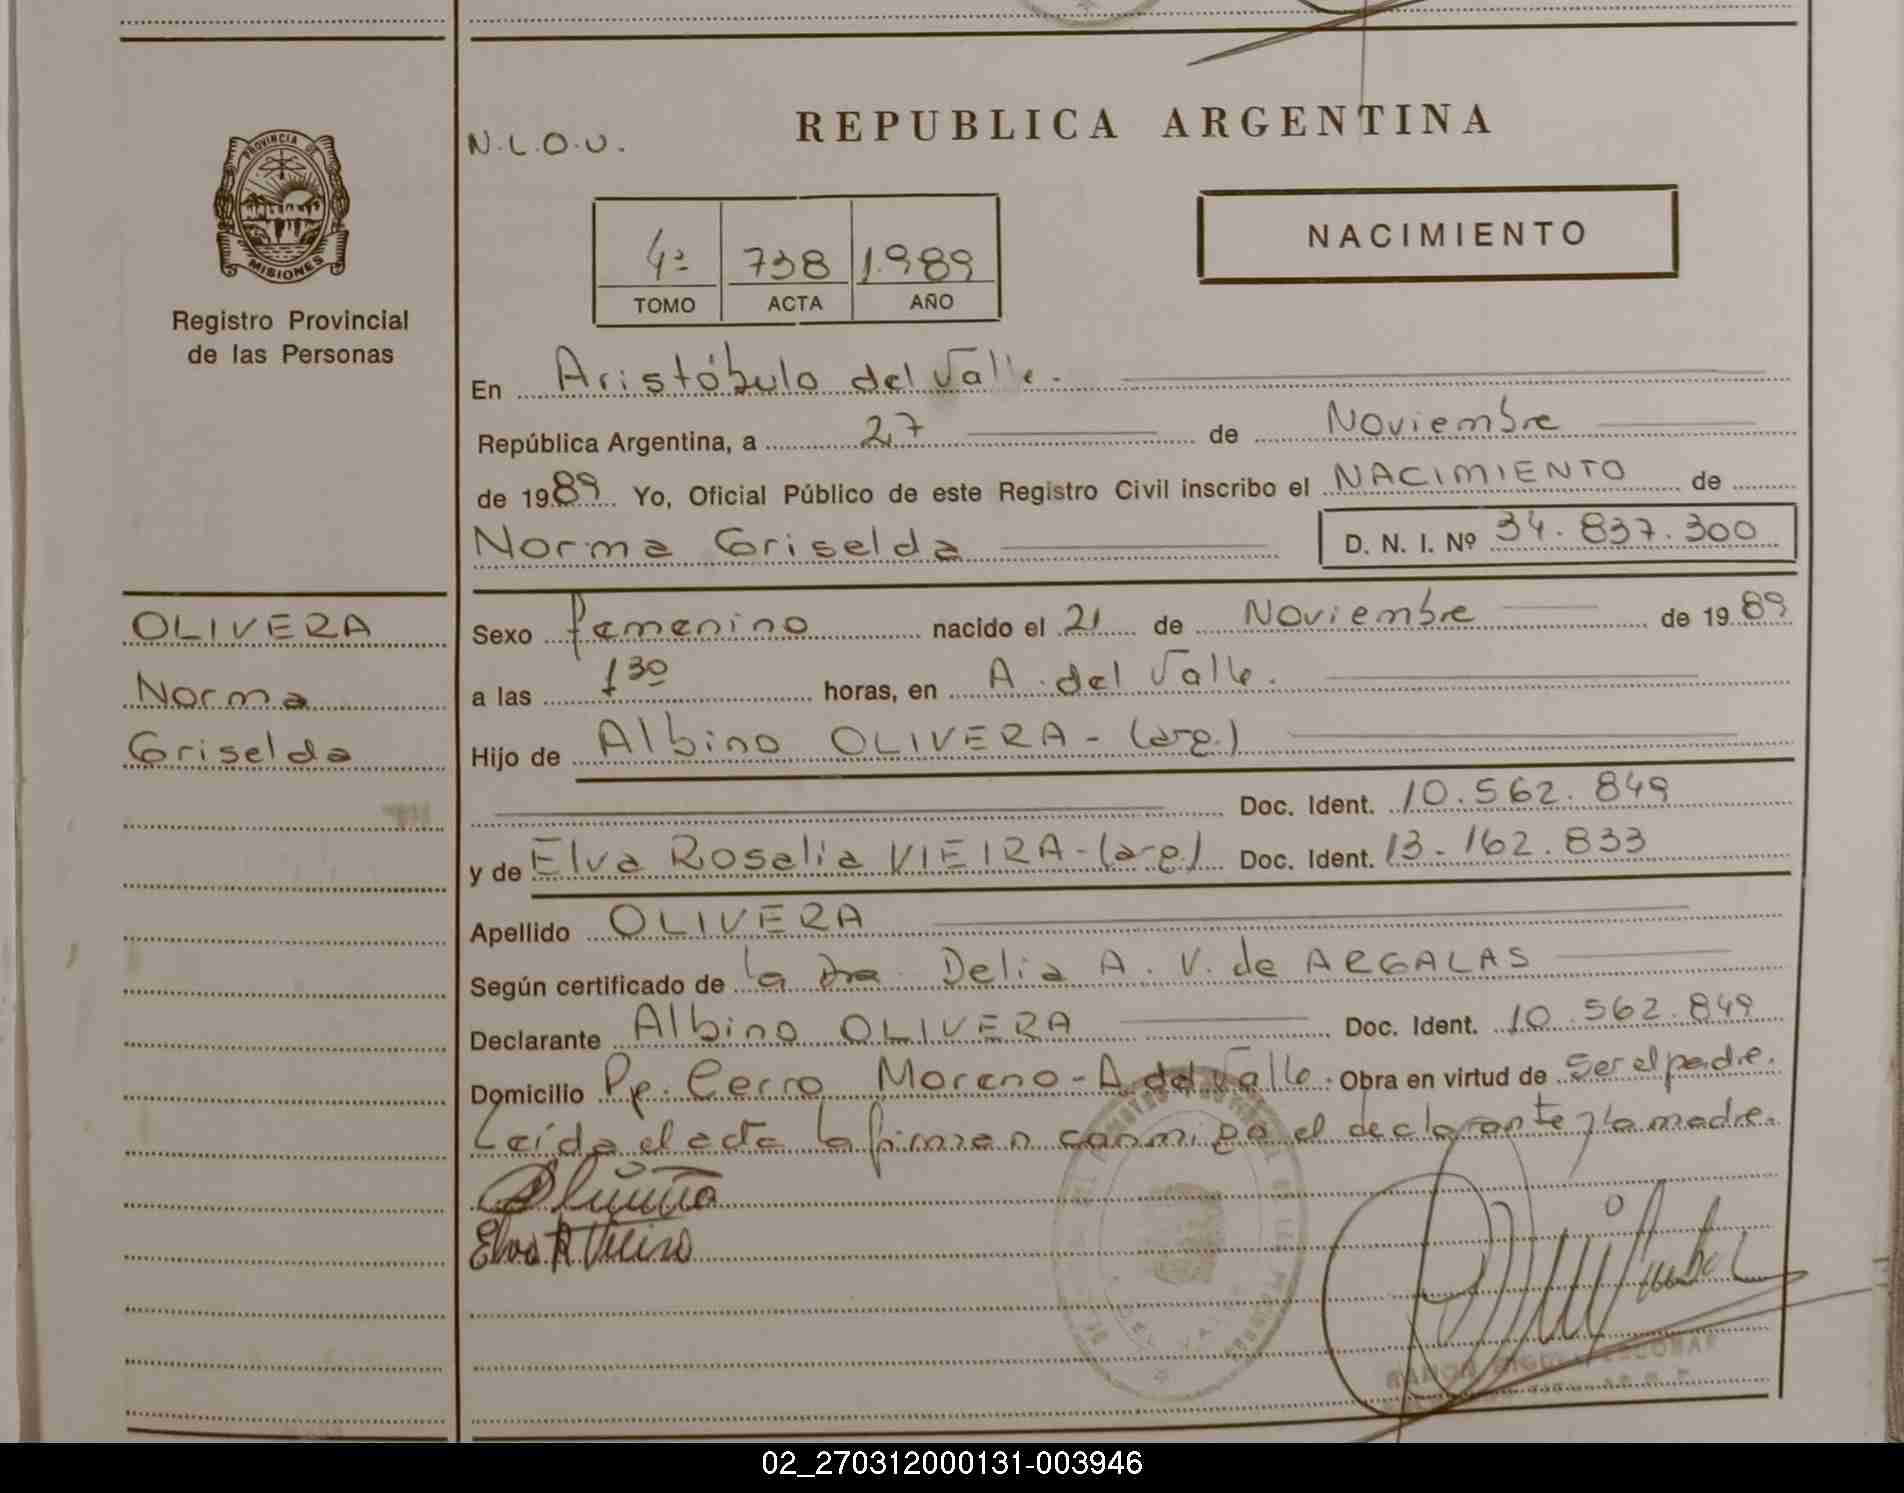 N.L.O.U.
REPUBLICA ARGENTINA
PROVINCIA DE
MISIONES
Registro Provincial
de las Personas
4º 738 1.989
TOMO ACTA AÑO
NACIMIENTO
En Aristóbulo del Valle.
República Argentina, a 27 de Noviembre
de 1989 Yo, Oficial Público de este Registro Civil inscribo el NACIMIENTO de
Norma Griselda D. N. I. Nº 34.837.300
OLIVERA
Norma
Griselda
Sexo femenino nacido el 21 de Noviembre de 1989
a las 1 30 horas, en A. del Valle.
Hijo de Albino OLIVERA - (arg.)
Doc. Ident. 10.562.849
y de Elva Rosalia VIEIRA - (arg.) Doc. Ident. 13.162.833
Apellido OLIVERA
Según certificado de la Dra. Delia A. V. de ARGALAS
Declarante Albino OLIVERA Doc. Ident. 10.562.849
Domicilio Pje. Cerro Moreno - A del Valle. Obra en virtud de ser el padre.
Leída el acta la firman conmigo el declarante y la madre.
Elva R Vieira
02_270312000131-003946